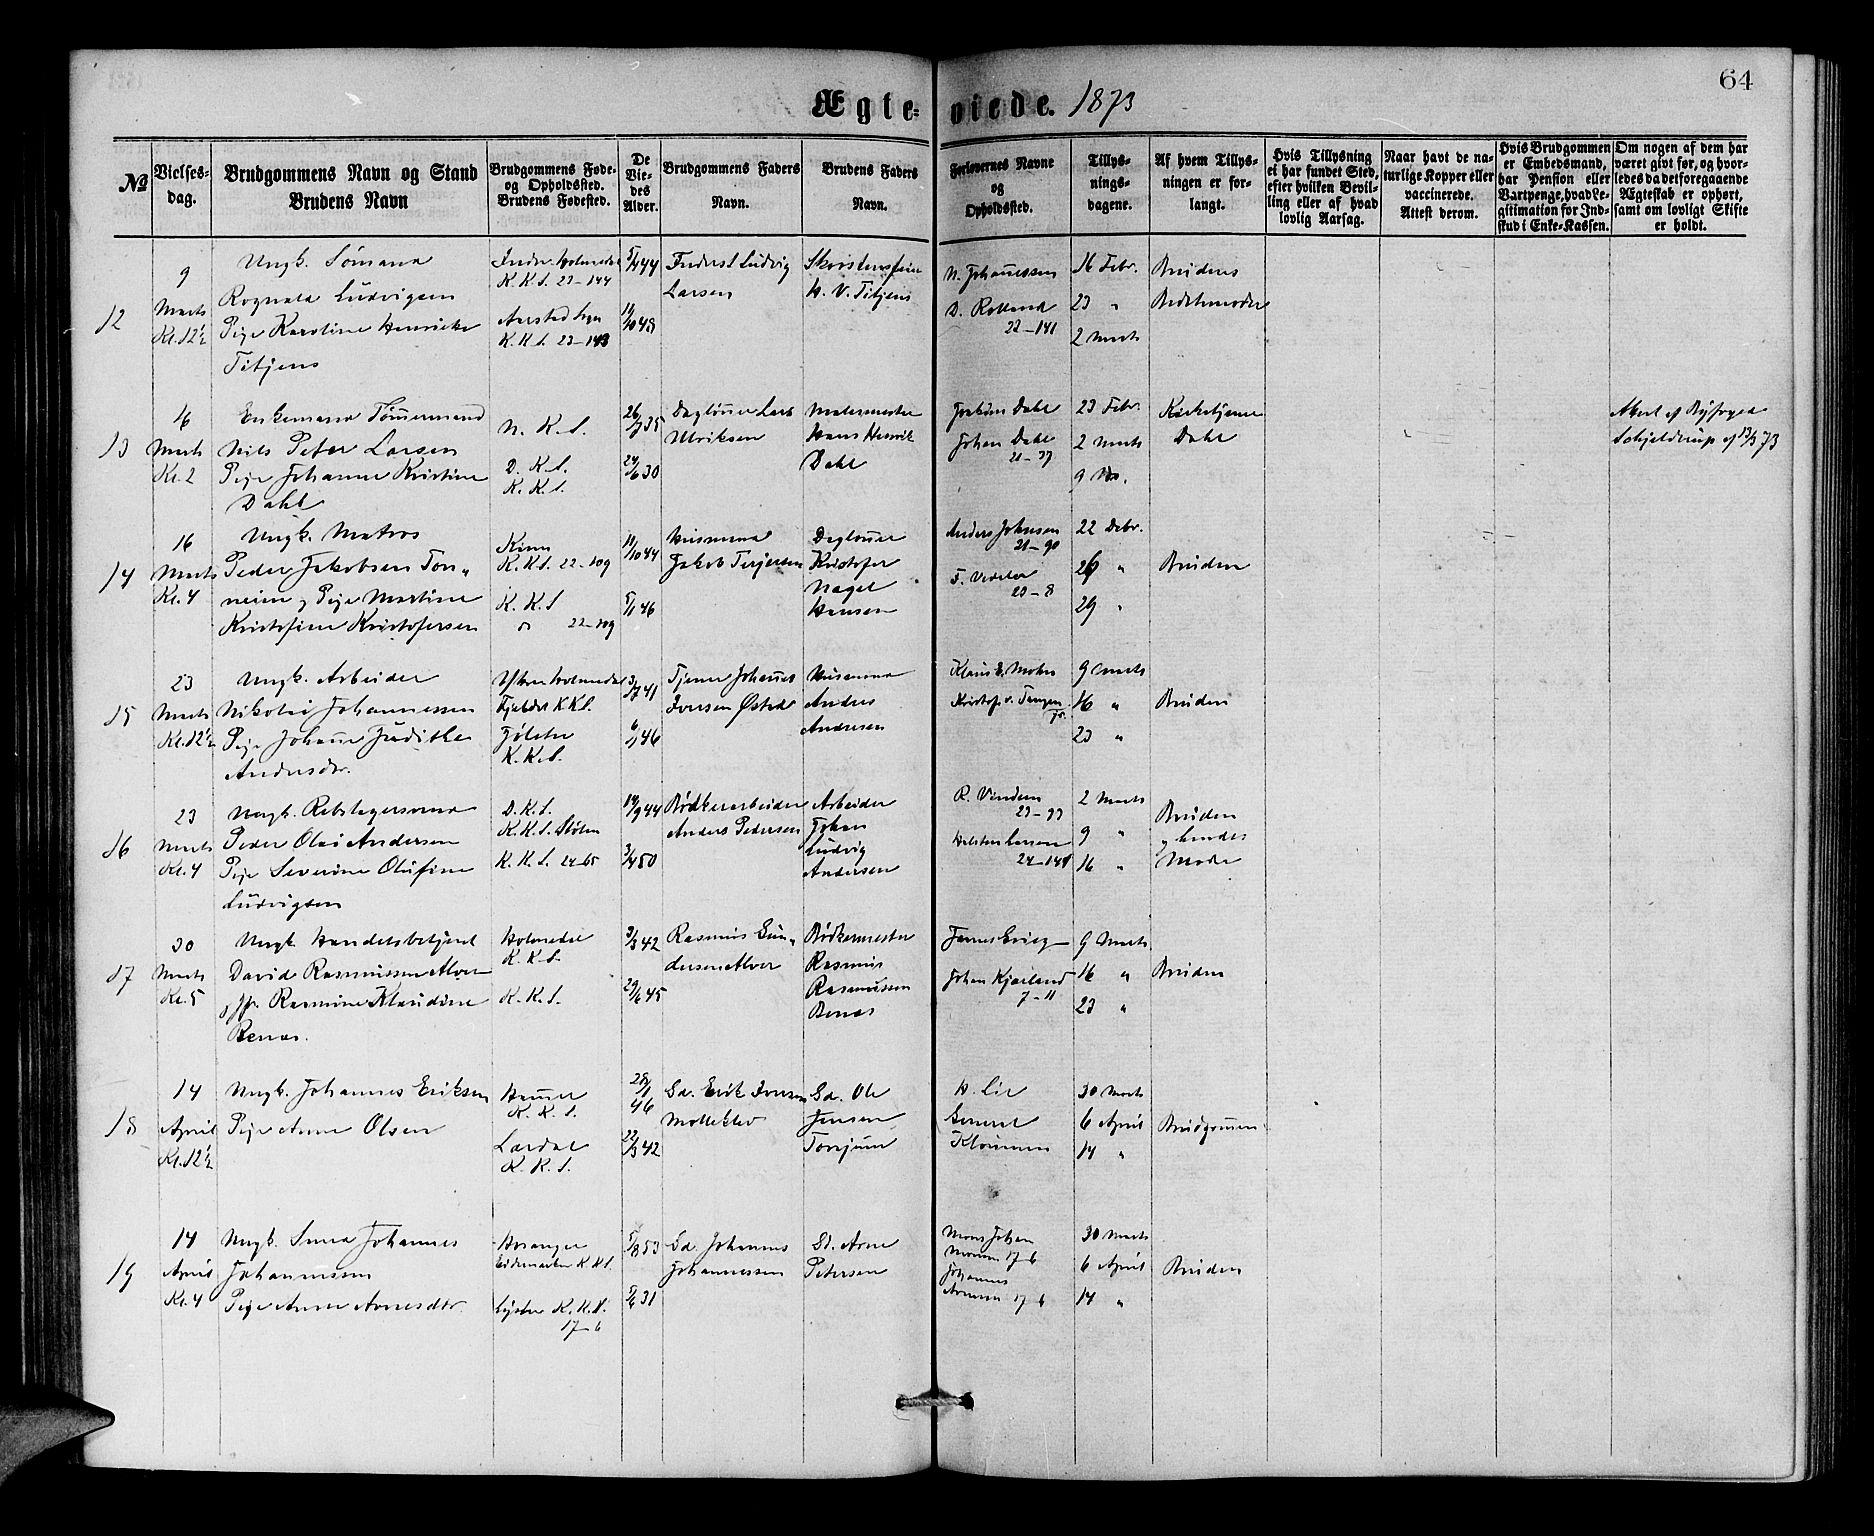 64
Ægteviede. 1873
No
Vielsesdag.
Brudgommens Navn og Stand
Brudens Navn
Brudgommens Føde- og Opholdssted.
Brudens Fødested.
De Viedes Alder.
Brudgommens Faders Navn.
Brudens Faders Navn.
Forlovernes Navne og Opholdssted.
Tillysningsdagene.
Af hvem Tillysningen er forlangt.
Hvis Tillysning ei har fundet Sted, efter hvilken Bevilling eller af hvad lovlig Aarsag.
Naar havt de naturlige Kopper eller vaccinerede. Attest derom.
Hvis Brudgommen er Embedsmand, har Pension eller Vartpenge, hvad Legitimation for Indskud i Enke-Kassen.
Om nogen af dem har været givt før, og hvorledes da det foregaaende Ægteskab er ophørt, samt om lovligt Skifte er holdt.
12
9 Marts Kl. 12½
Ungk. Sømand
Rognald Ludvigsen
Pige Karoline Henrikke
Titjens
Indre Holmedal
K.K.S. 23-144
Aarstad Sogn
K.K.S. 23-143
5/4 44
11/10 48
Ludvig
Larsen
Skorstensfeier
H. V. Titjens
N. Johannessen
D. Rolland
22-141
16 Febr.
23 "
2 Marts
Brudens
Bedstemoder
13
16 Marts Kl. 2
Enkemand Tømmermand
Nils Peter Larsen
Pige Johanne Kristine
Dahl
N. K. S.
D. K. S.
K. K. S.
26/7 35
24/6 30
Dagløner Lars
Ulriksen
Malermester
Hans Henrik
Dahl
Joakim Dahl
Johan Dahl
21-37
23 Febr.
2 Marts
9 Do.
Kirketjener
Dahl
Attest af Byfoged
Schjelderup af 13/3 73
14
16 Marts Kl. 4
Ungk. Matros
Peder Jakobsen Ton-
neien, Pige Martine
Kristofine Kristofersen
Kinn
K.K.S. 22-109
K. K. S
22-109
11/10 44
5/1 46
Husmand
Jakob Terjersen
Dagløner
Kristofer
Nagel
Hansen
Anders Johnsen
21-90
F. Vedeler
23-8
22 Debr.
26 "
29 "
Bruden
15
23 Marts Kl. 12½
Ungk. Arbeider
Nikolai Johannessen
Pige Johanne Judithe
Andersdtr.
Ytre Holmedal
K.K.S.
Jølster
K.K.S.
41
46
Tjener Johannes
Iversen
Husmand
Anders
Andresen
Klaus E. Mohn
Kristof. v. Tangen
Jr.
9 Marts
16 "
23 "
Bruden
16
23 Marts Kl. 4
Ungk. Rebslagersvend
Peder Olai Andersen
Pige Severine Olufine
Ludvigsen
D. K. S.
K.K.S. Stølen
K. K. S. 24-65
14/9 44
3/4 50
Bødkerarbeider
Anders Pedersen
Arbeider
Johan
Ludvig
Andersen
R. Vindenes
23-33
Halsten Larsen
24-141
2 Marts
9 "
16 "
Bruden
og hendes
Moder
17
30 Marts Kl. 5
Ungk. Handelsbetjent
David Rasmussen Alver
og Jfr. Rasmine Klaudine
Benas.
Holmedal
K. K. S.
K. K. S.
3/3 42
29/6 45
Rasmus Gun-
dersen Alver
Bødkermester
Rasmus
Rasmussen
Benas
James Grieg
Johan Kjærland
7-11
9 Marts
16 "
23 "
Bruden
18
14 April Kl. 12½
Ungk. Johannes Eriksen
Pige Anne Olsen
Hammer
K. K. S.
Lærdal
K. K. S.
28/1 46
22/3 42
Gd. Erik Iversen
Molleklev
Gd. Ole
Jensen
Tonjum
H. Lie
Gomnæs
30 Marts
6 April
14 "
Brudgommen
19
14 April Kl. 4
Ungk. Smed Johannes
Johannessen
Pige Anne Arnesdtr.
Hosanger
Eidemarken K.K.S.
Lyster K.K.S.
17-6
5/8 53
31
Gd. Johannes
Johannessen
Gd. Arne
Petersen
Mons Johan
Monsen 17-6
Johannes
Arnesen 17-6
30 Marts
6 April
14 "
Bruden